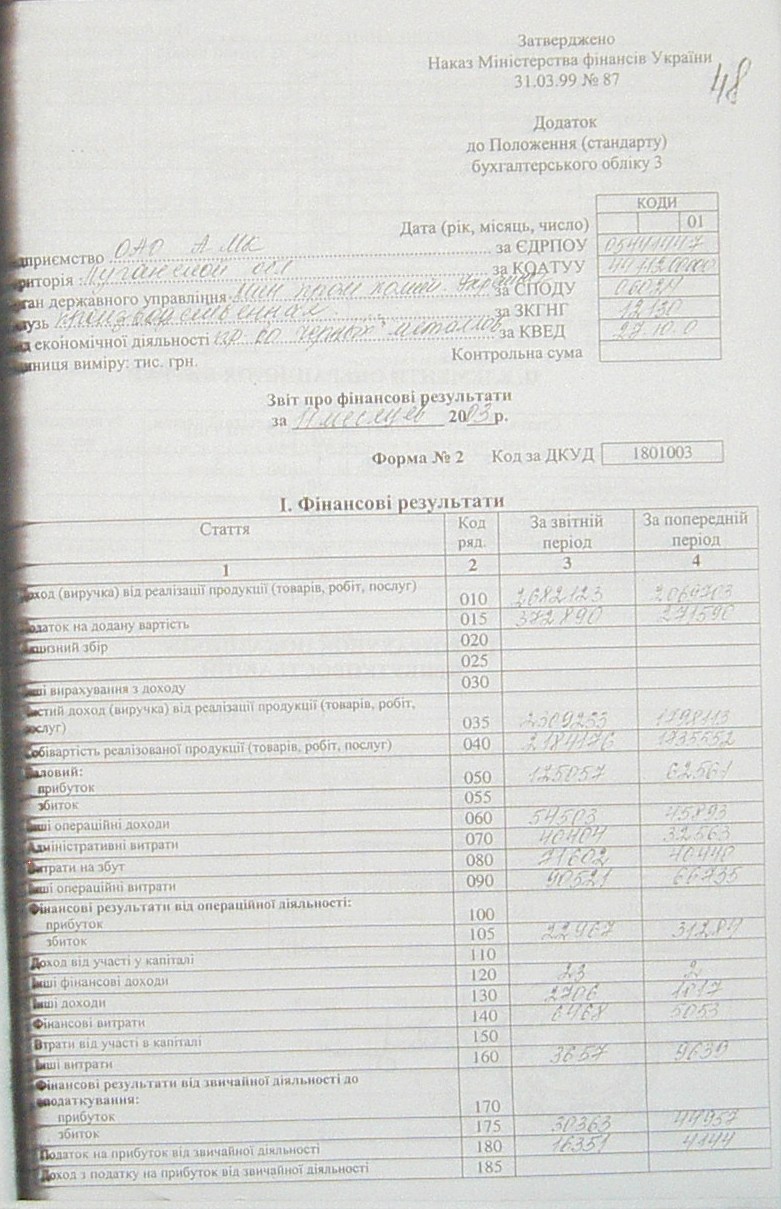 Затверджено
Наказ Міністерства фінансів України
31.03.99 № 87
48
Додаток
до Положення (стандарту)
бухгалтерського обліку 3
КОДИ
Дата (рік, місяць, число) 01
дприємство ОАО АМК за ЄДРПОУ 05441447
риторія : Луганской обл за КОАТУУ
ган державного управління Мин пром за СПОДУ 06024
лузь производственная за ЗКГНГ 12130
д економічної діяльності пр-во черных металлов за КВЕД 27.10.0
диниця виміру: тис. грн. Контрольна сума
Звіт про фінансові результати
за 11 месяцев 2003 р.
Форма № 2 Код за ДКУД 1801003
І. Фінансові результати
Стаття Код ряд. За звітній період За попередній період
1 2 3 4
оход (виручка) від реалізації продукції (товарів, робіт, послуг) 010 2682123 2069703
одаток на додану вартість 015 372890 271590
кцизний збір 020
025
нші вирахування з доходу 030
истий доход (виручка) від реалізації продукції (товарів, робіт,
ослуг) 035 2309233 1798113
обівартість реалізованої продукції (товарів, робіт, послуг) 040 2184176 1735552
Валовий:
прибуток 050 125057 62561
збиток 055
нші операційні доходи 060 54503 45893
Адміністративні витрати 070 40404 32563
Витрати на збут 080 71602 40440
Інші операційні витрати 090 90521 66735
Фінансові результати від операційної діяльності:
прибуток 100
збиток 105 22967 31284
Доход від участі у капіталі 110
Інші фінансові доходи 120 23 2
Інші доходи 130 2706 1017
Фінансові витрати 140 6468 5053
Втрати від участі в капіталі 150
Інші витрати 160 3657 9639
Фінансові результати від звичайної діяльності до
оподаткування:
прибуток 170
збиток 175 30363 44957
Податок на прибуток від звичайної діяльності 180 16351 4144
Доход з податку на прибуток від звичайної діяльності 185